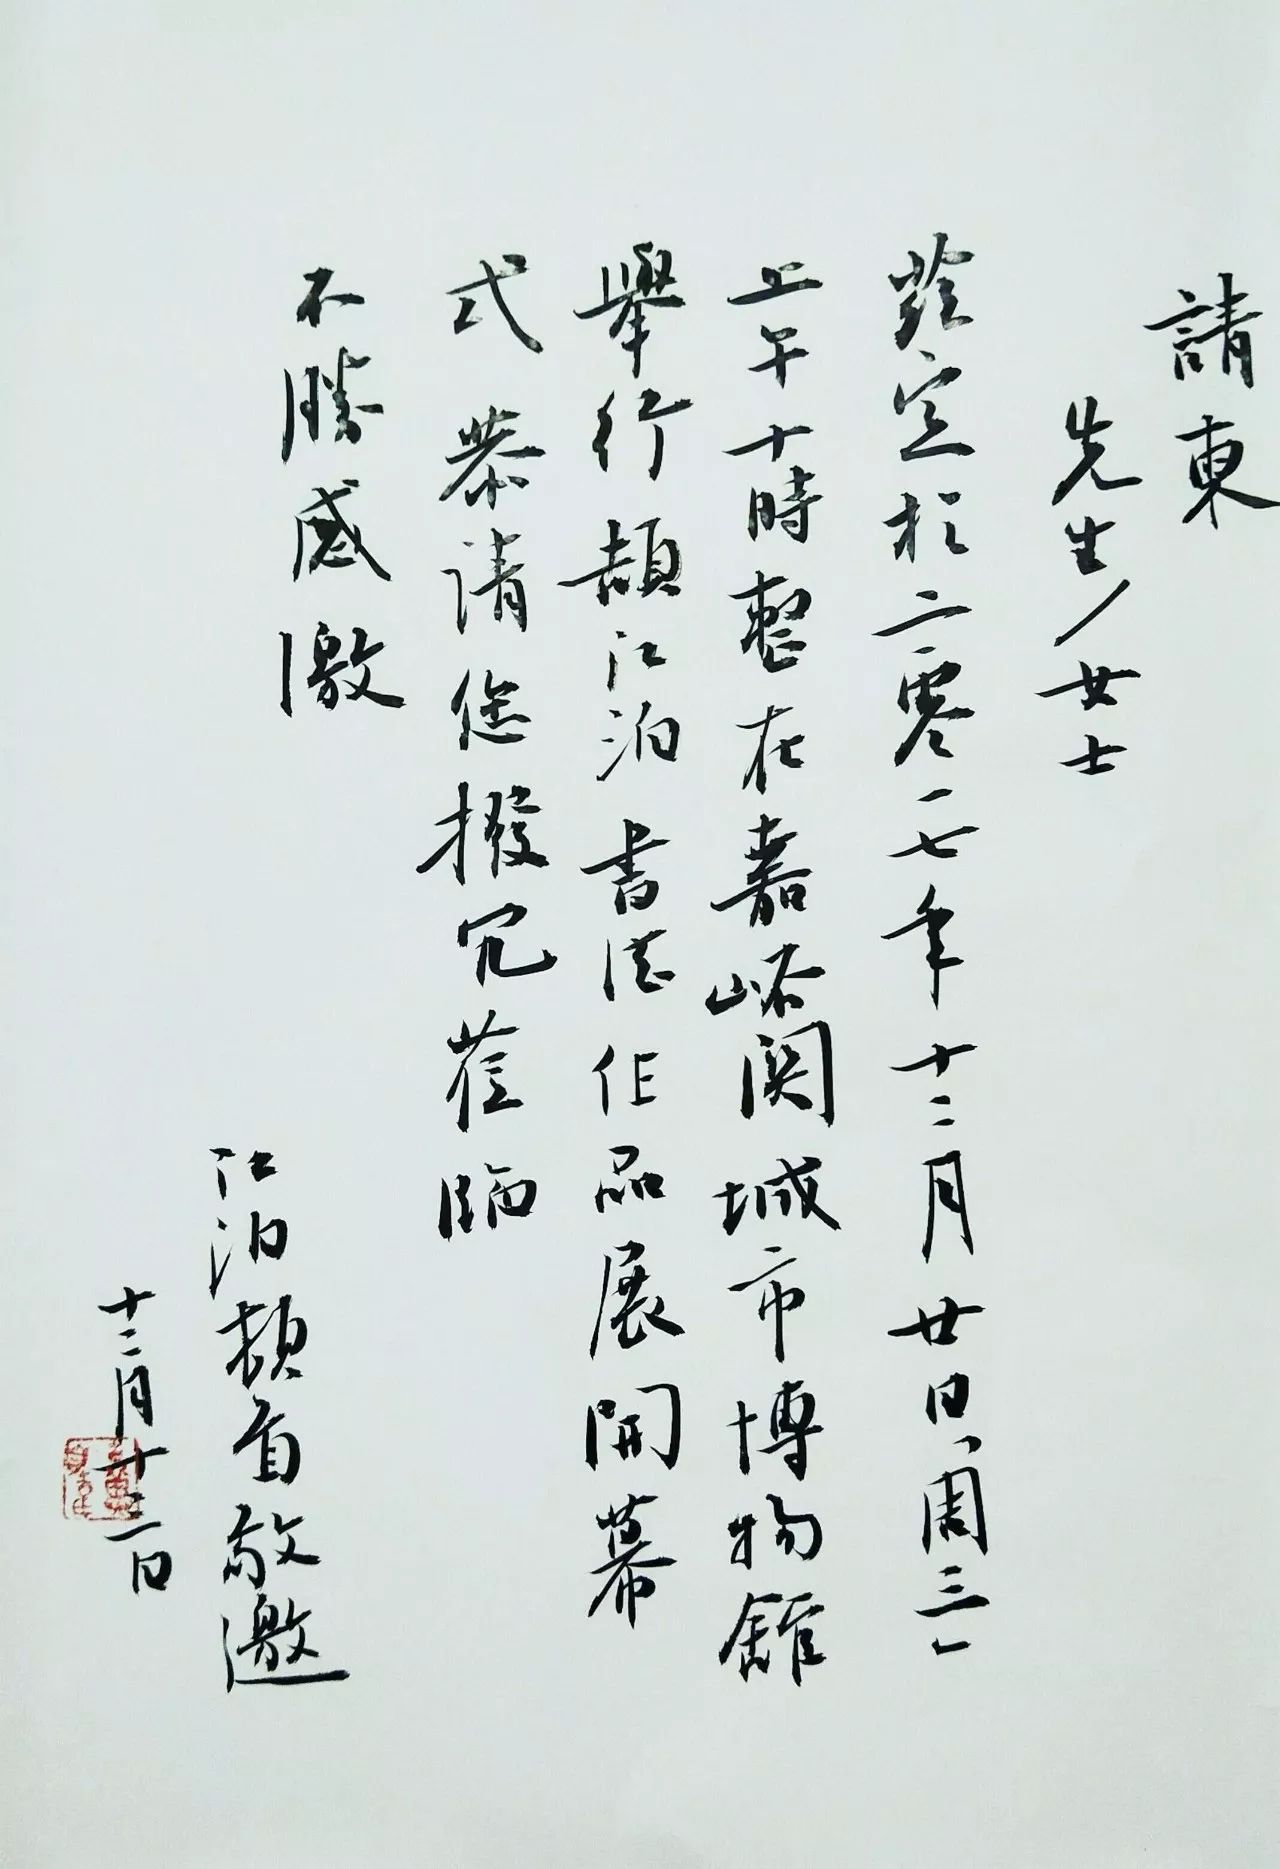 請柬
先生/女士
兹定於二零一七年十二月廿日(周三)
上午十時整在嘉峪関城市博物館
舉行頡江泊書法作品展開幕
式 恭請您撥冗莅臨
不勝感激
江泊頓首敬邀
十二月十二日